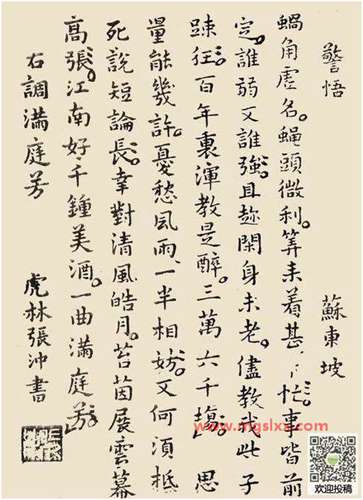 警悟 蘇東坡
蝸角虛名。蠅頭微利。筭来着甚忙。事皆前
定。誰弱又誰強。且趂閑身未老。儘教我些子
踈狂。百年裏渾教是醉。三萬六千塲。思
量能幾許。憂愁風雨。一半相妨。又何須抵
死說短論長。幸對清風皓月。苔茵展雲幕
高張。江南好。千鍾美酒。一曲滿庭芳。
右調滿庭芳 虎林張沖書
欢迎投稿